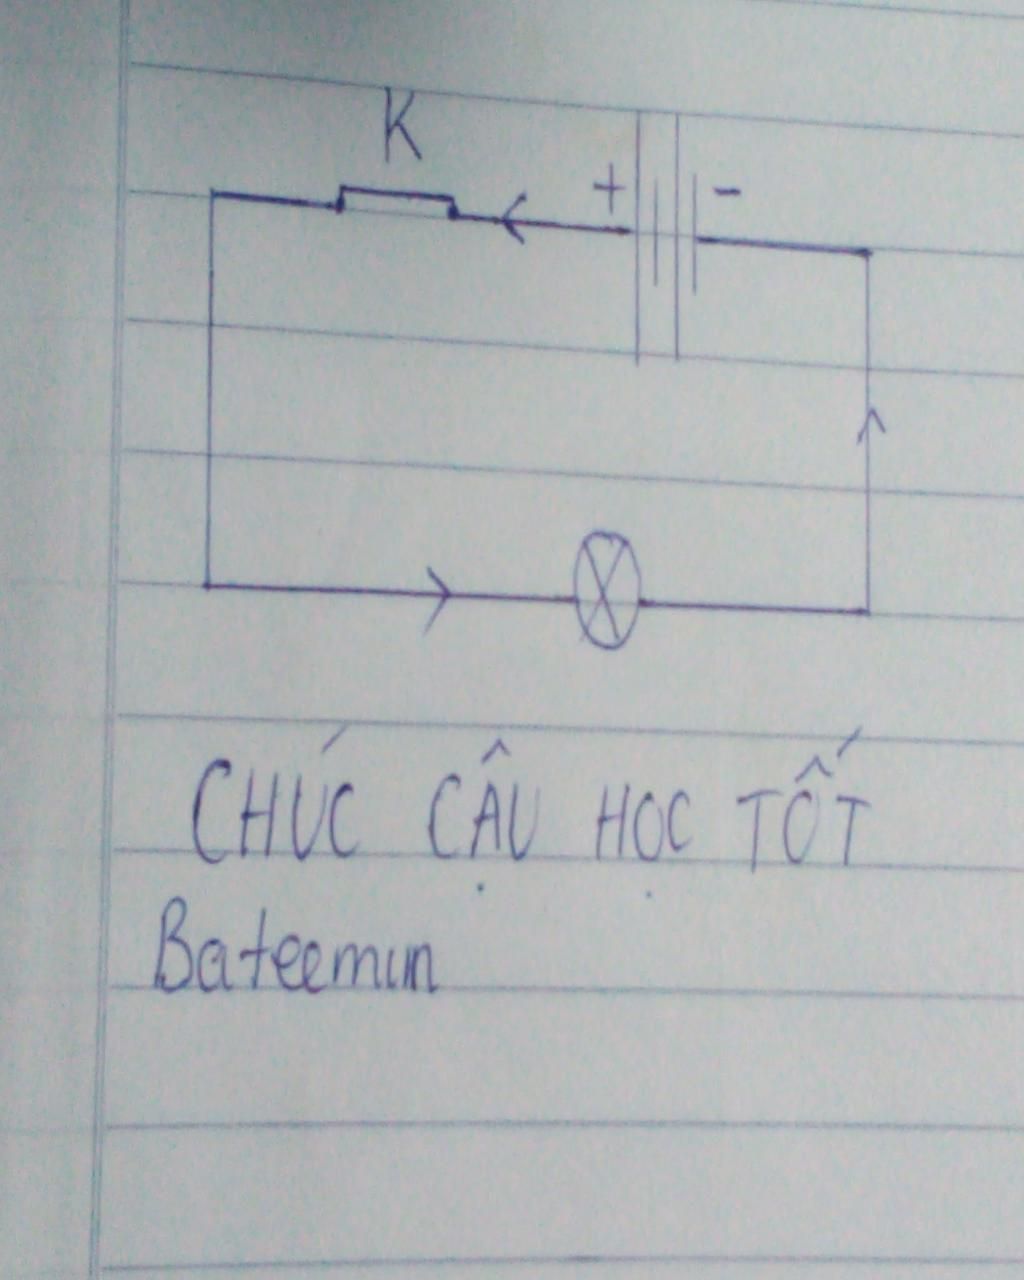 K
+ -
CHÚC CẬU HỌC TỐT
Bateemin